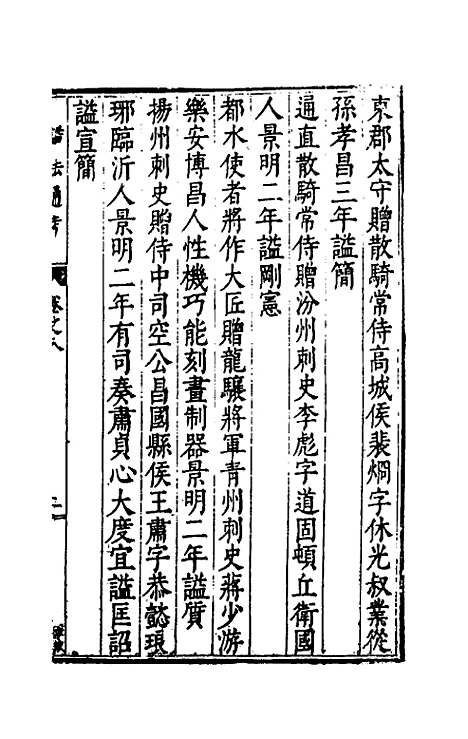 東郡太守贈散騎常侍高城侯裴烱字休光叔業從
孫孝昌三年謚簡
通直散騎常侍贈汾州刺史李彪字道固頓丘衛國
人景明二年謚剛憲
都水使者將作大匠贈龍驤將軍青州刺史蔣少游
樂安博昌人性機巧能刻畫制器景明二年謚質
揚州刺史贈侍中司空公昌國縣侯王肅字恭懿琅
琊臨沂人景明二年有司奏肅貞心大度宜謚匡詔
謚宣簡
謚法通考
卷之八
二